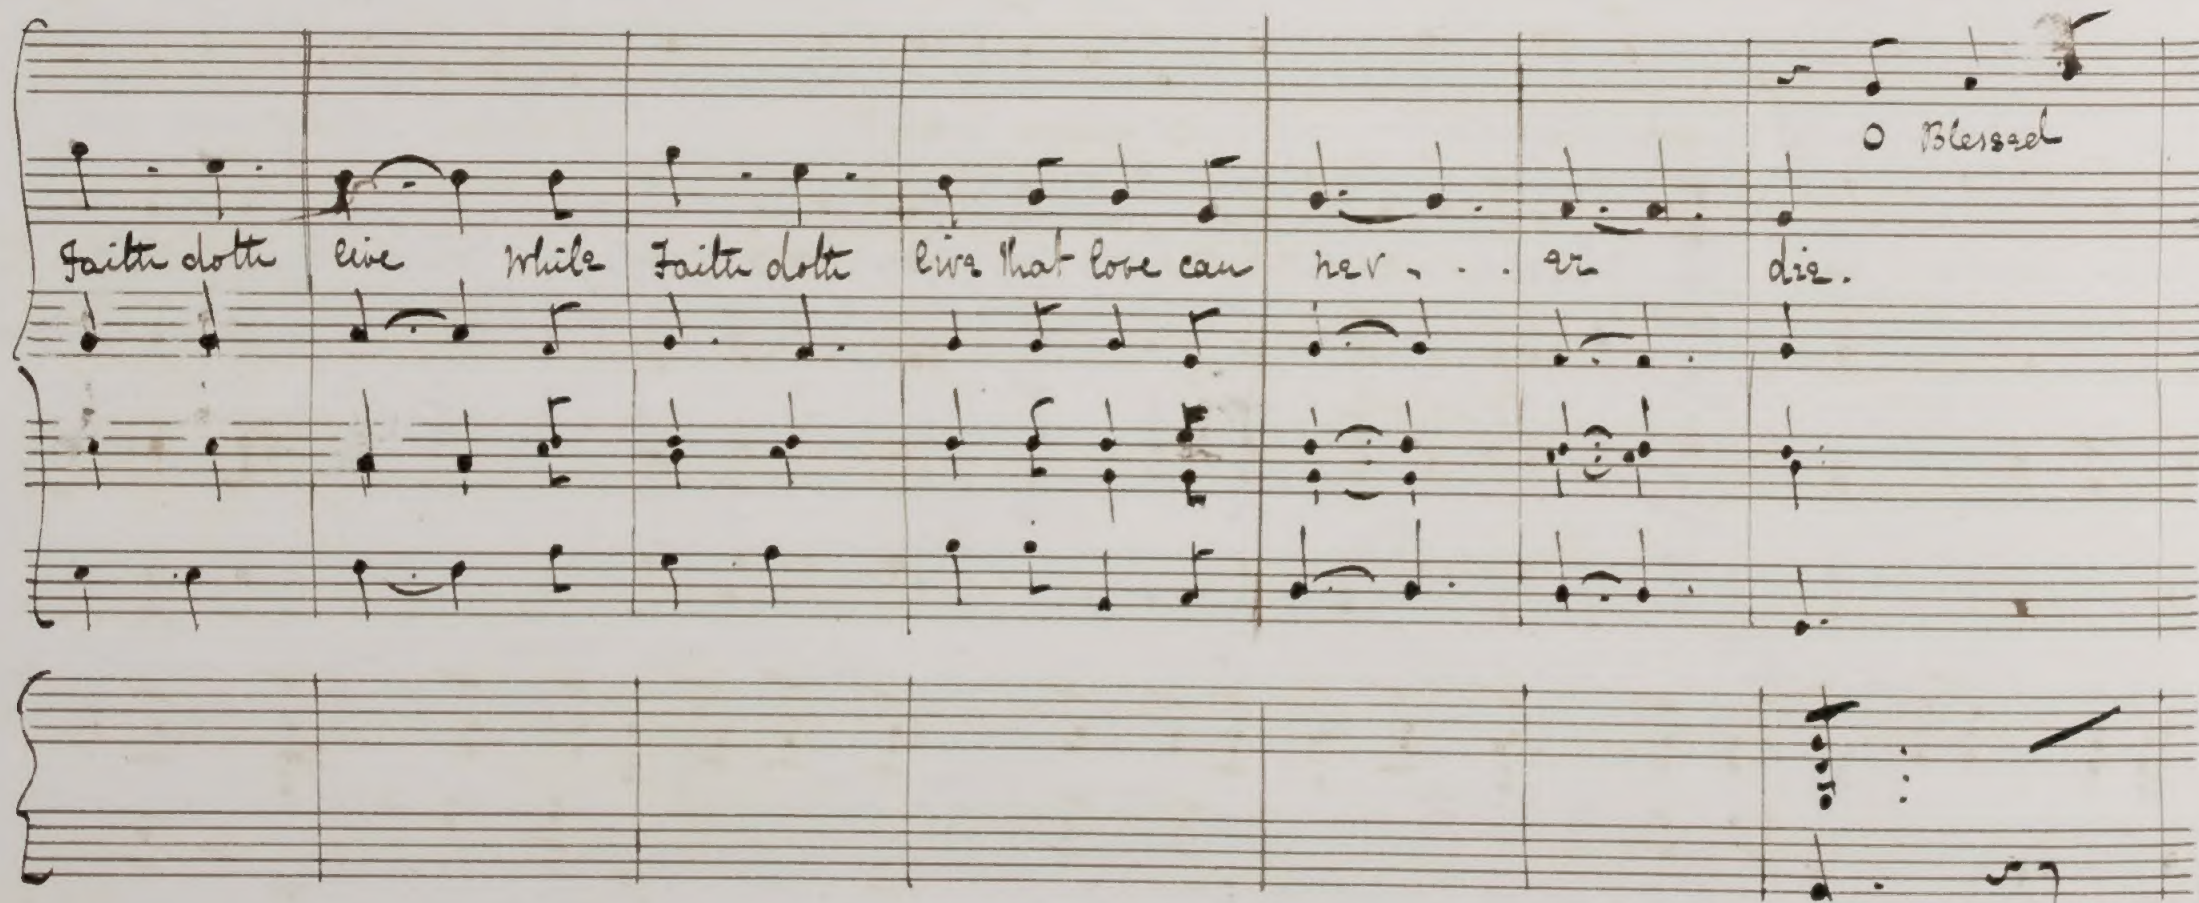 O Blessed
Faith doth live while Faith doth live that love can nev - . . er die.